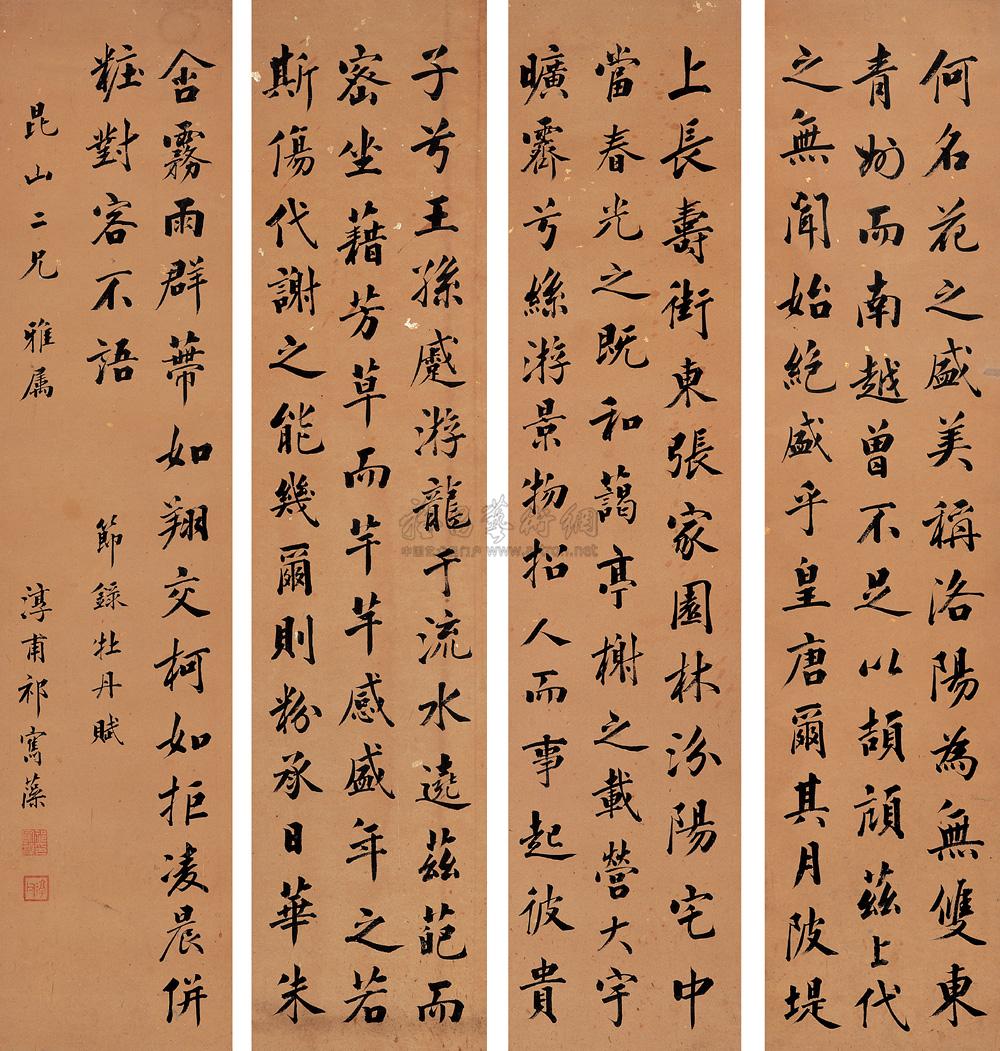 何名花之盛美稱洛陽為無雙東
青州而南越曾不足以頡頏茲上代
之無聞始絕盛乎皇唐爾其月陂堤
上長壽街東張家園林汾陽宅中
當春光之既和藹亭榭之載營大宇
曠霽兮絲游景物招人而事起彼貴
子兮王孫蹙游龍于流水遶茲葩而
密坐藉芳草而芊芊感盛年之若
斯傷代謝之能幾爾則粉承日華朱
含霧雨群蔕如翔交柯如拒凌晨併
粧對客不語
節錄牡丹賦
昆山二兄雅屬
淳甫祁寯藻